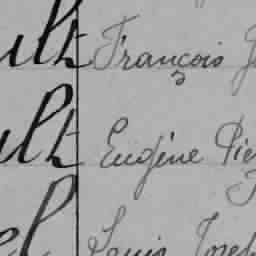 ult François J
ult Eugène Pie
el Louis Joseph